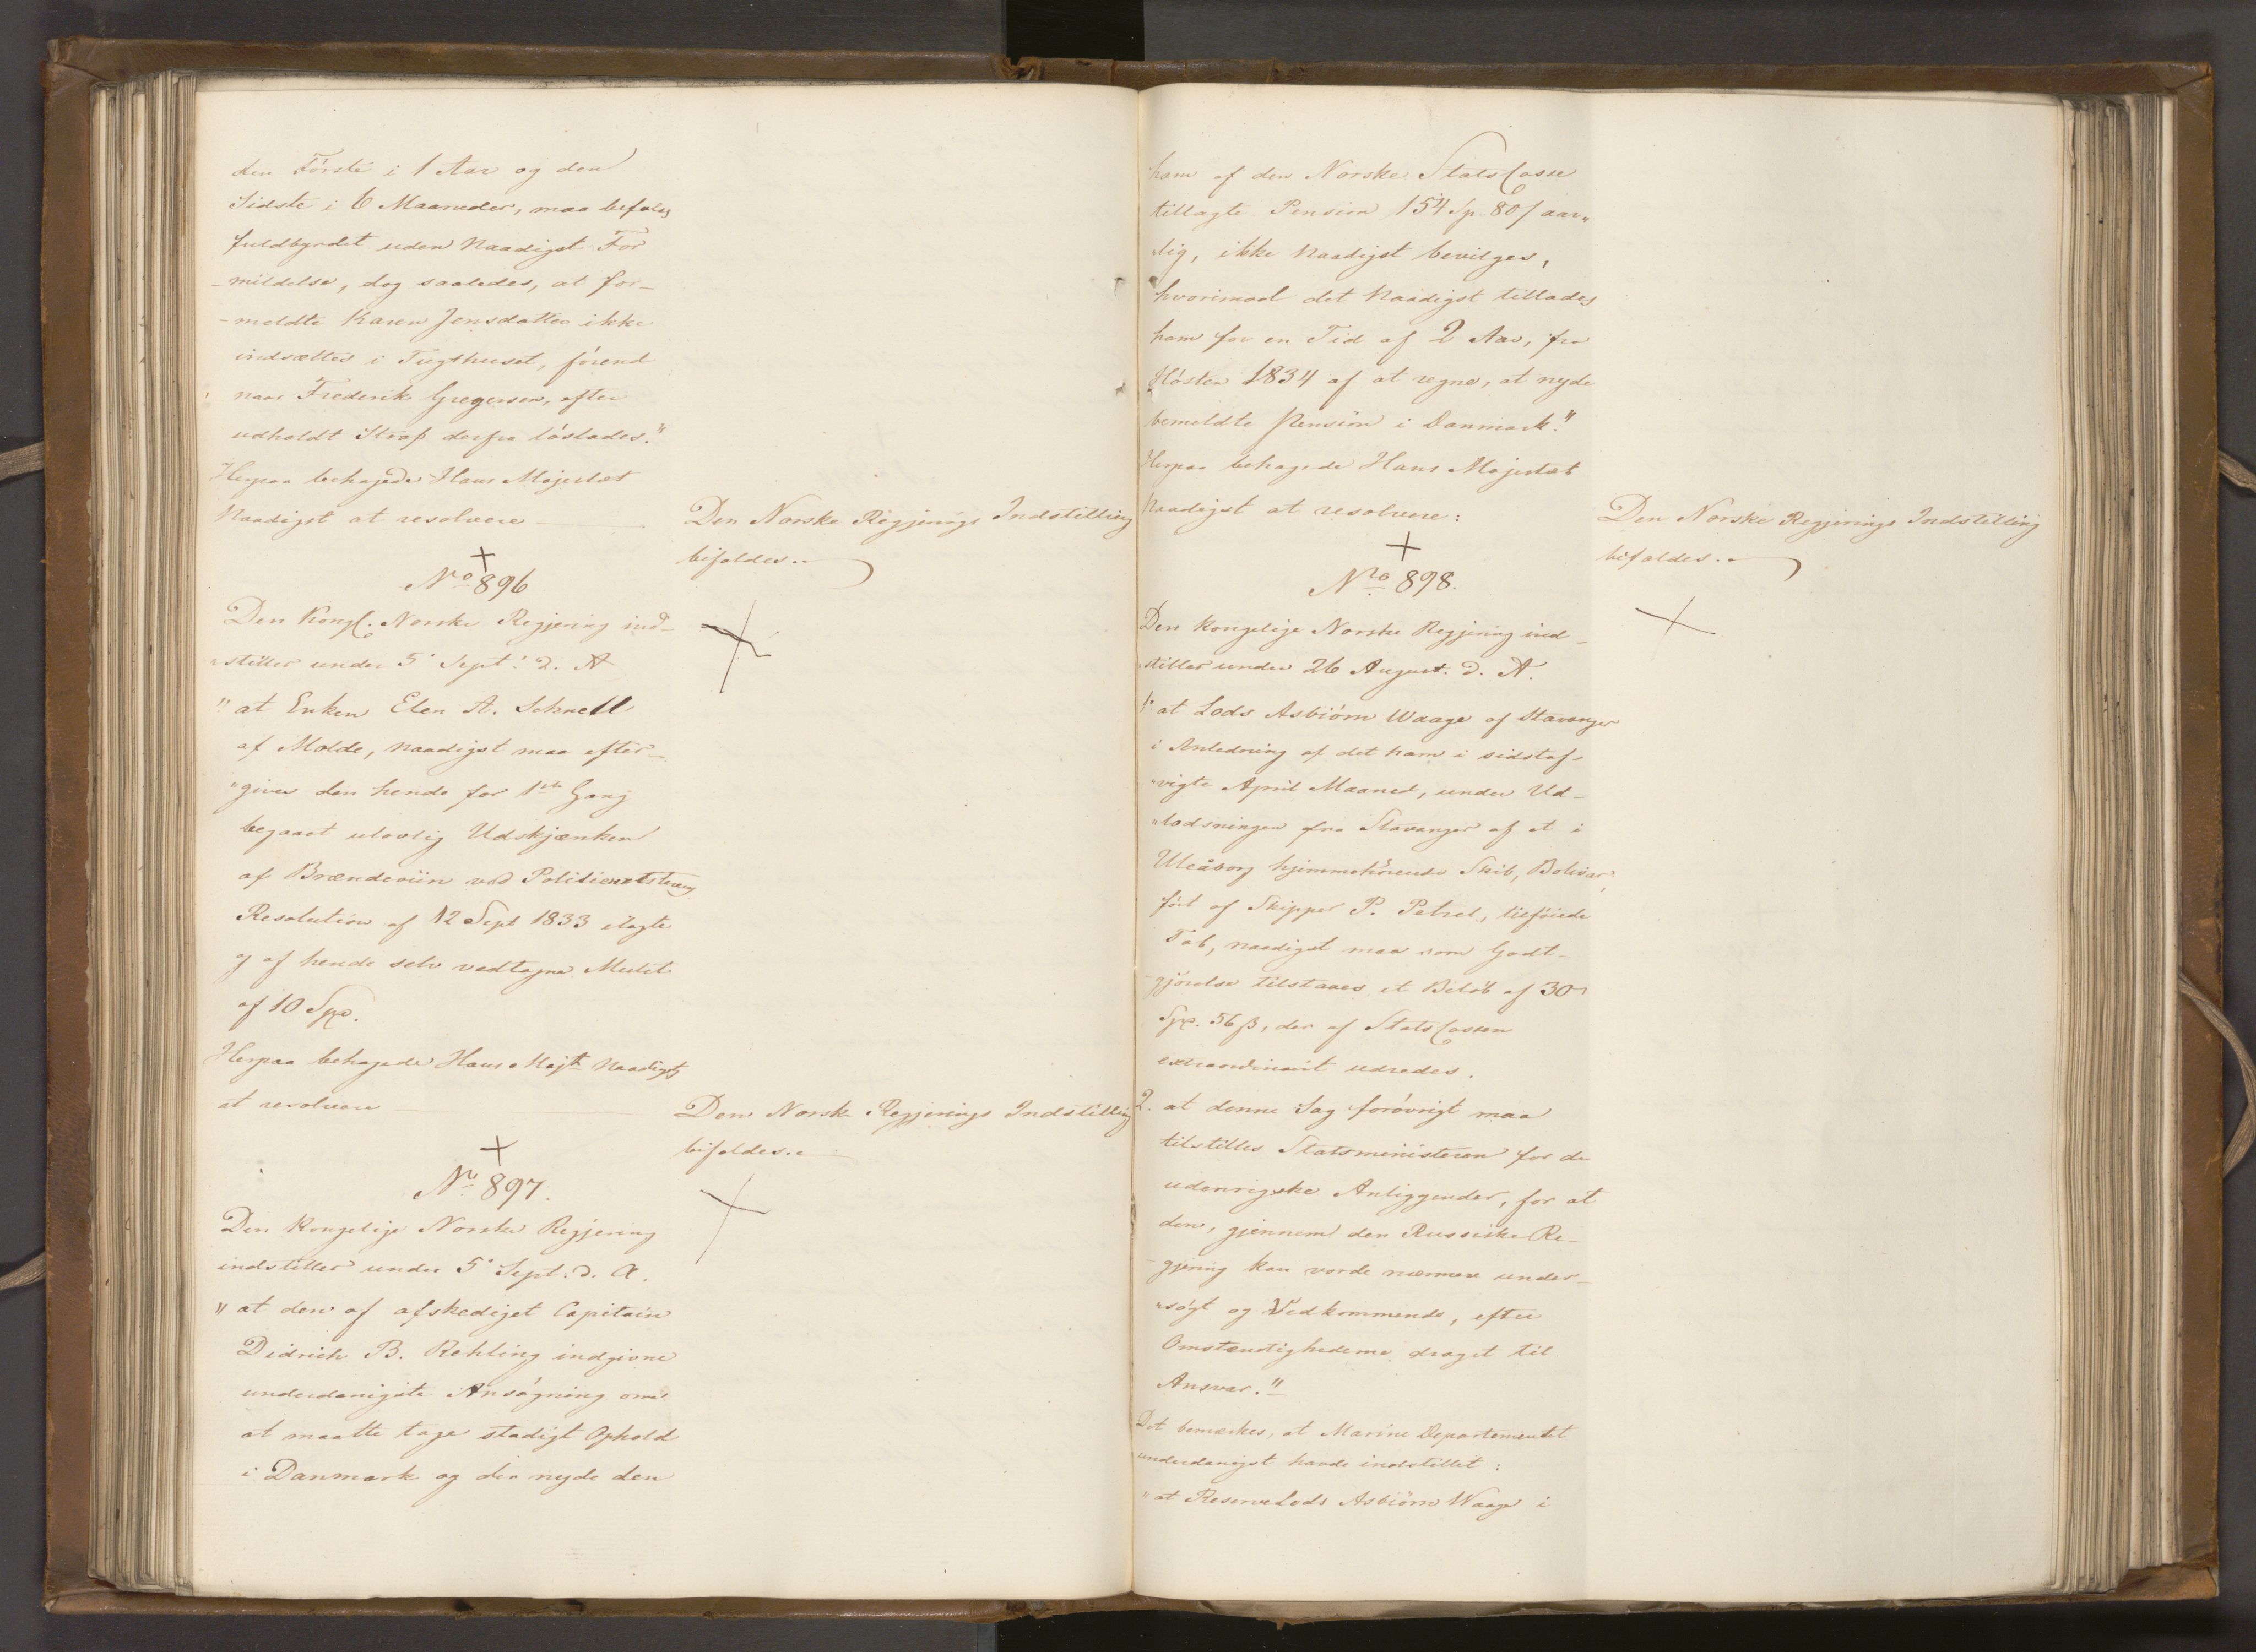 den Förste i 1 Aar og den
Sidste i 6 Maaneder, maa befales
fuldbyrdet uden Naadigst For
-mildelse, dog saaledes, at for-
-meldte Karen Jensdatter ikke
indsættes i Tugthuset, förend
naar Frederik Gregersen, efter
udholdt Straf derfra löslades."
Herpaa behagede Hans Majestæt
Naadigst at resolvere
Den Norske Regjerings Indstilling
bifaldes.
No 896
Den Kongl. Norske Regjering ind-
stiller under 5' Sept: d. A
" at Enken Elen A. Schnell
af Molde, naadigst maa efter-
"gives den hende for 1ste Gang
begaaet ulovlig Udskjænken
af Brændeviin ved
Resolution af 12 Sept 1833 ilagte
og af hende selv vedtagne Mulct
af 10 Spd.
Herpaa behagede Hans Majt Naadigst
at resolvere
Den Norske Regjerings Indstilling
bifaldes.
No 897.
Den Kongelige Norske Regjering
indstiller under 5' Sept. d. A.
" at den af afskediget Capitain
Didrich B. Rehling indgivne
underdanigste Ansøgning om
at maatte tage stadigt Ophold
i Danmark og der nyde den
ham af den Norske StatsCasse
tillagte Pension 154 Sp. 80/ aar„
lig, ikke Naadigst bevilges,
hvorimod det Naadigst tillades
ham for en Tid af 2 Aar, fra
Hösten 1834 af at regne, at nyde
bemeldte Pension i Danmark."
Herpaa behagede Hans Majestæt
Naadigst at resolvere:
Den Norske Regjerings Indstilling
bifaldes.
No 898.
Den kongelige Norske Regjering ind-
stiller under 26 August. d. A.
1. at Lods Asbiörn Waage af Stavanger
i Anledning af det ham i sidstaf-
"vigte April Maaned, under Ud-
"lodsningen fra Stavanger af et i
Uleåborg hjemmehörende Skib, Bolivar,
fört af Skipper P. Petrel, tilföiede
Tab, naadigst maa som Godt-
-gjörelse tilstaaes et Belöb af 30
Spd. 56 ß, der af StatsCassen
extraordinairt udredes.
2. at denne Sag forövrigt maa
tilstilles Statsministeren for de
udenrigske Anliggender, for at
den, gjennem den Russiske Re-
-gjering kan vorde nærmere under-
"sögt og Vedkommende, efter
Omstændighederne draget til
Ansvar."
Det bemærkes, at Marine Departementet
underdanigst havde indstillet:
" at ReserveLods Asbiörn Waage i